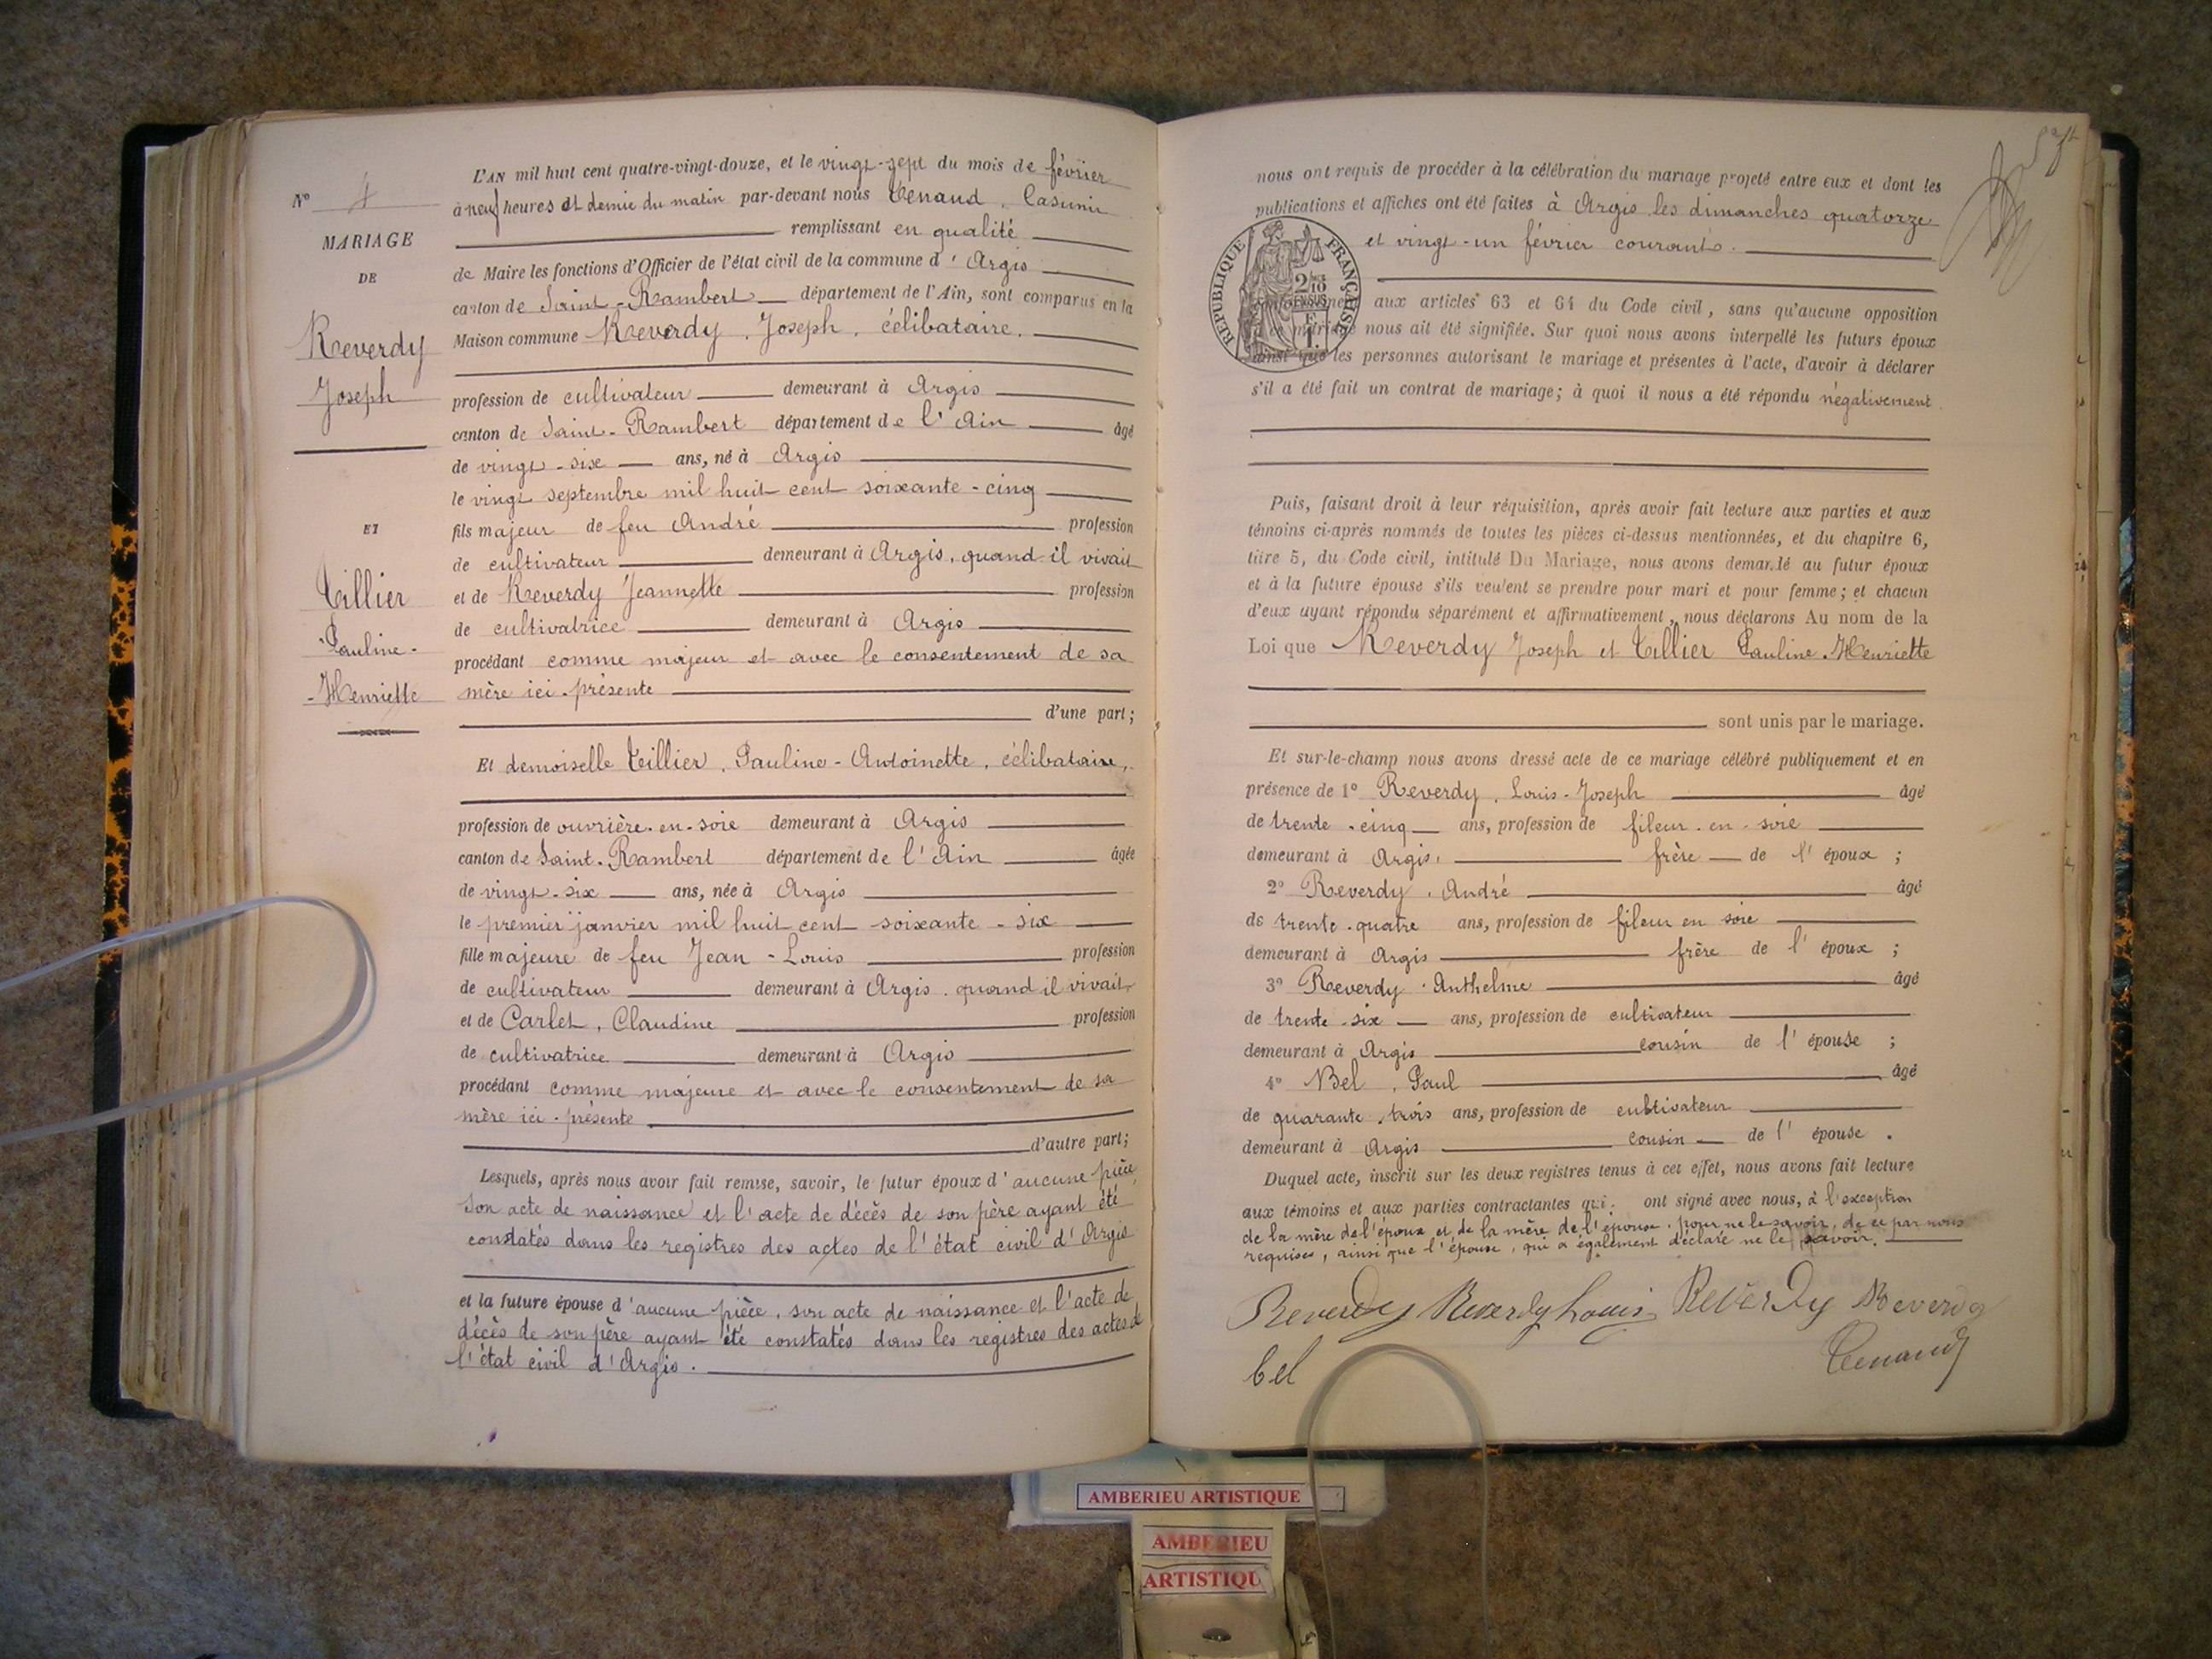 L'AN mil huit cent quatre-vingt-douze, et le vingt-sept du mois de février
à neuf heures et demie du matin par-devant nous Tenand, Casimir
remplissant en qualité
de Maire les fonctions d'Officier de l'état civil de la commune d'Argis
canton de Saint-Rambert département de l'Ain, sont comparus en la
Maison commune Reverdy, Joseph, célibataire.
profession de cultivateur demeurant à Argis
canton de Saint-Rambert département de l'Ain âgé
de vingt-six ans, né à Argis
le vingt septembre mil huit cent soixante-cinq
fils majeur de feu André profession
de cultivateur demeurant à Argis, quand il vivait
et de Reverdy Jeannette profession
de cultivatrice demeurant à Argis
procédant comme majeur et avec le consentement de sa
mère ici-présente
d'une part;
Et demoiselle Tillier, Pauline-Antoinette, célibataire,
profession de ouvrière-en-soie demeurant à Argis
canton de Saint-Rambert département de l'Ain âgée
de vingt-six ans, née à Argis
le premier janvier mil huit cent soixante-six
fille majeure de feu Jean-Louis profession
de cultivateur demeurant à Argis, quand il vivait,
et de Carlet, Claudine profession
de cultivatrice demeurant à Argis
procédant comme majeure et avec le consentement de sa
mère ici-présente
d'autre part;
Lesquels, après nous avoir fait remise, savoir, le futur époux d'aucune pièce
son acte de naissance et l'acte de décès de son père ayant été
constatés dans les registres des actes de l'état civil d'Argis
et la future épouse d'aucune pièce, son acte de naissance et l'acte de
décès de son père ayant été constatés dans les registres des actes de
l'état civil d'Argis.
N° 4
MARIAGE
DE
Reverdy
Joseph
ET
Tillier
Pauline-
-Henriette
nous ont requis de procéder à la célébration du mariage projeté entre eux et dont les
publications et affiches ont été faites à Argis les dimanches quatorze
et vingt-un février courants.
RÉPUBLIQUE FRANÇAISE
aux articles 63 et 64 du Code civil, sans qu'aucune opposition
mariage nous ait été signifiée. Sur quoi nous avons interpellé les futurs époux
ainsi que les personnes autorisant le mariage et présentes à l'acte, d'avoir à déclarer
s'il a été fait un contrat de mariage; à quoi il nous a été répondu négativement
Puis, faisant droit à leur réquisition, après avoir fait lecture aux parties et aux
témoins ci-après nommés de toutes les pièces ci-dessus mentionnées, et du chapitre 6,
titre 5, du Code civil, intitulé Du Mariage, nous avons demandé au futur époux
et à la future épouse s'ils veulent se prendre pour mari et pour femme; et chacun
d'eux ayant répondu séparément et affirmativement, nous déclarons Au nom de la
Loi que Reverdy Joseph et Tillier Pauline Henriette
sont unis par le mariage.
Et sur-le-champ nous avons dressé acte de ce mariage célébré publiquement et en
présence de 1° Reverdy, Louis-Joseph âgé
de trente-cinq ans, profession de fileur-en-soie
demeurant à Argis, frère de l'époux;
2° Reverdy, André âgé
de trente-quatre ans, profession de fileur en soie
demeurant à Argis frère de l'époux;
3° Reverdy Anthelme âgé
de trente-six ans, profession de cultivateur
demeurant à Argis cousin de l'épouse;
4° Bel, Paul âgé
de quarante-trois ans, profession de cultivateur
demeurant à Argis cousin de l'épouse.
Duquel acte, inscrit sur les deux registres tenus à cet effet, nous avons fait lecture
aux témoins et aux parties contractantes qui ont signé avec nous, à l'exception
de la mère de l'époux et de la mère de l'épouse, pour ne le savoir, de ce par nous
requises, ainsi que l'épouse, qui a également déclaré ne le savoir.
Reverdy Reverdy Louis Reverdy Reverdy
Tenand
bel
AMBERIEU ARTISTIQUE
AMBERIEU
ARTISTIQU